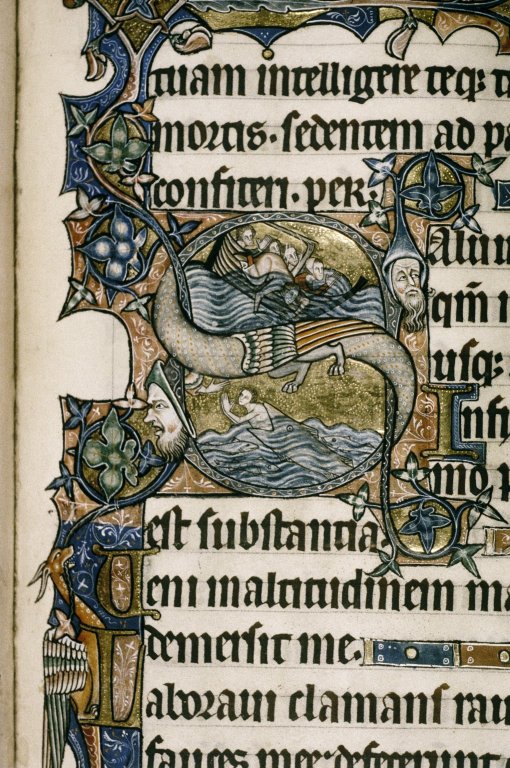 tuam intelligere teq;
mortis. sedentem ad
confiteri. per.
SAluu
qm̄ i
usq;
Infi
mo p
est substantia.
Ueni in altitudinem ma
demersit me.
Laboraui clamans rau
fauces mee: defecerunt